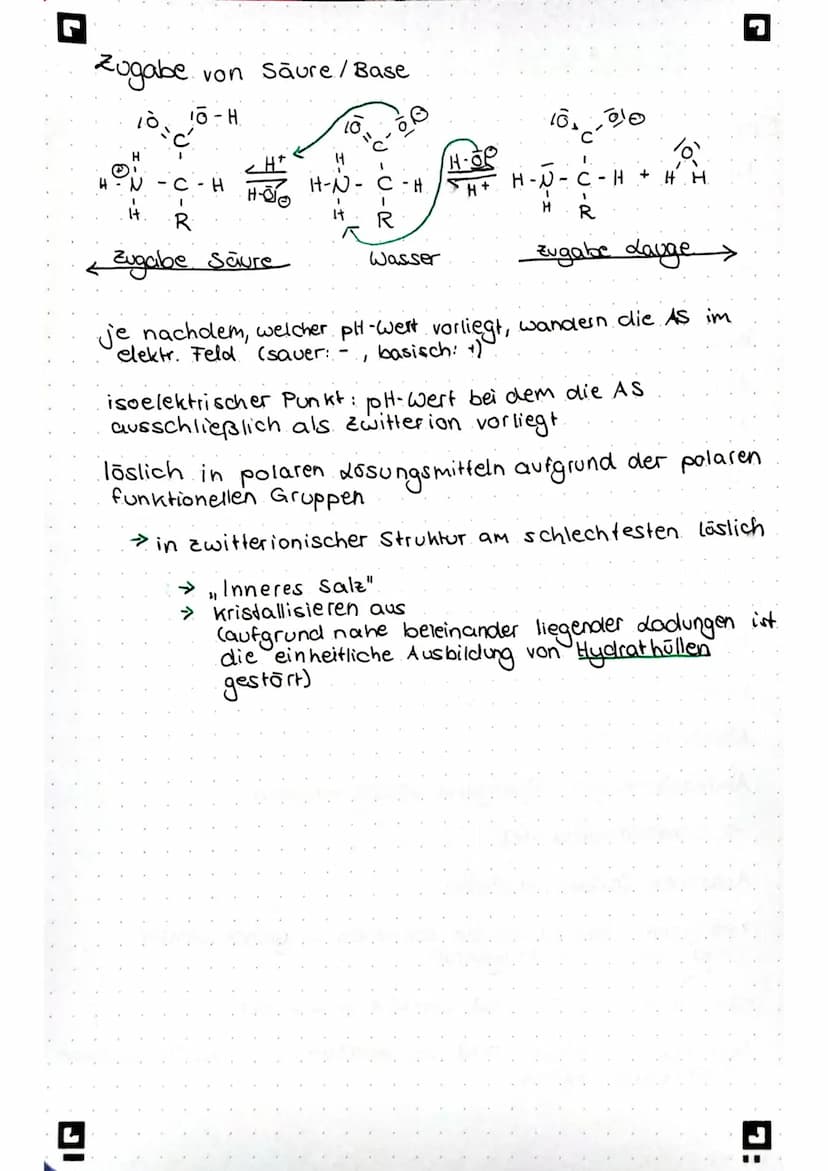 Zugabe von Säure / Base
|O̅ |O̅ - H |O̅ O̅|⊖ |O̅ O̅|⊖
C C C O
H H+ H H-O̅|⊖ H H
H - N⊕ - C - H H-O̅|⊖ H-N - C - H H+ H - N̅ - C - H +
H R H R H R
Zugabe Säure Wasser Zugabe Lauge
je nachdem, welcher pH-Wert vorliegt, wandern die AS im
elektr. Feld (sauer: - , basisch: +)
isoelektrischer Punkt: pH-Wert bei dem die AS
ausschließlich als Zwitterion vorliegt
löslich in polaren Lösungsmitteln aufgrund der polaren
funktionellen Gruppen
→ in zwitterionischer Struktur am schlechtesten löslich
→ „Inneres Salz"
→ kristallisieren aus
(aufgrund nahe beieinander liegender Ladungen ist
die einheitliche Ausbildung von Hydrathüllen
gestört)